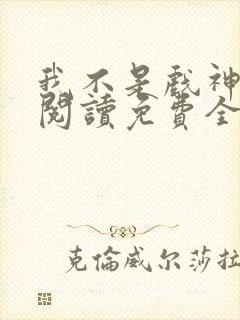 我不是戲神
閱讀免費全
克倫威尔莎拉